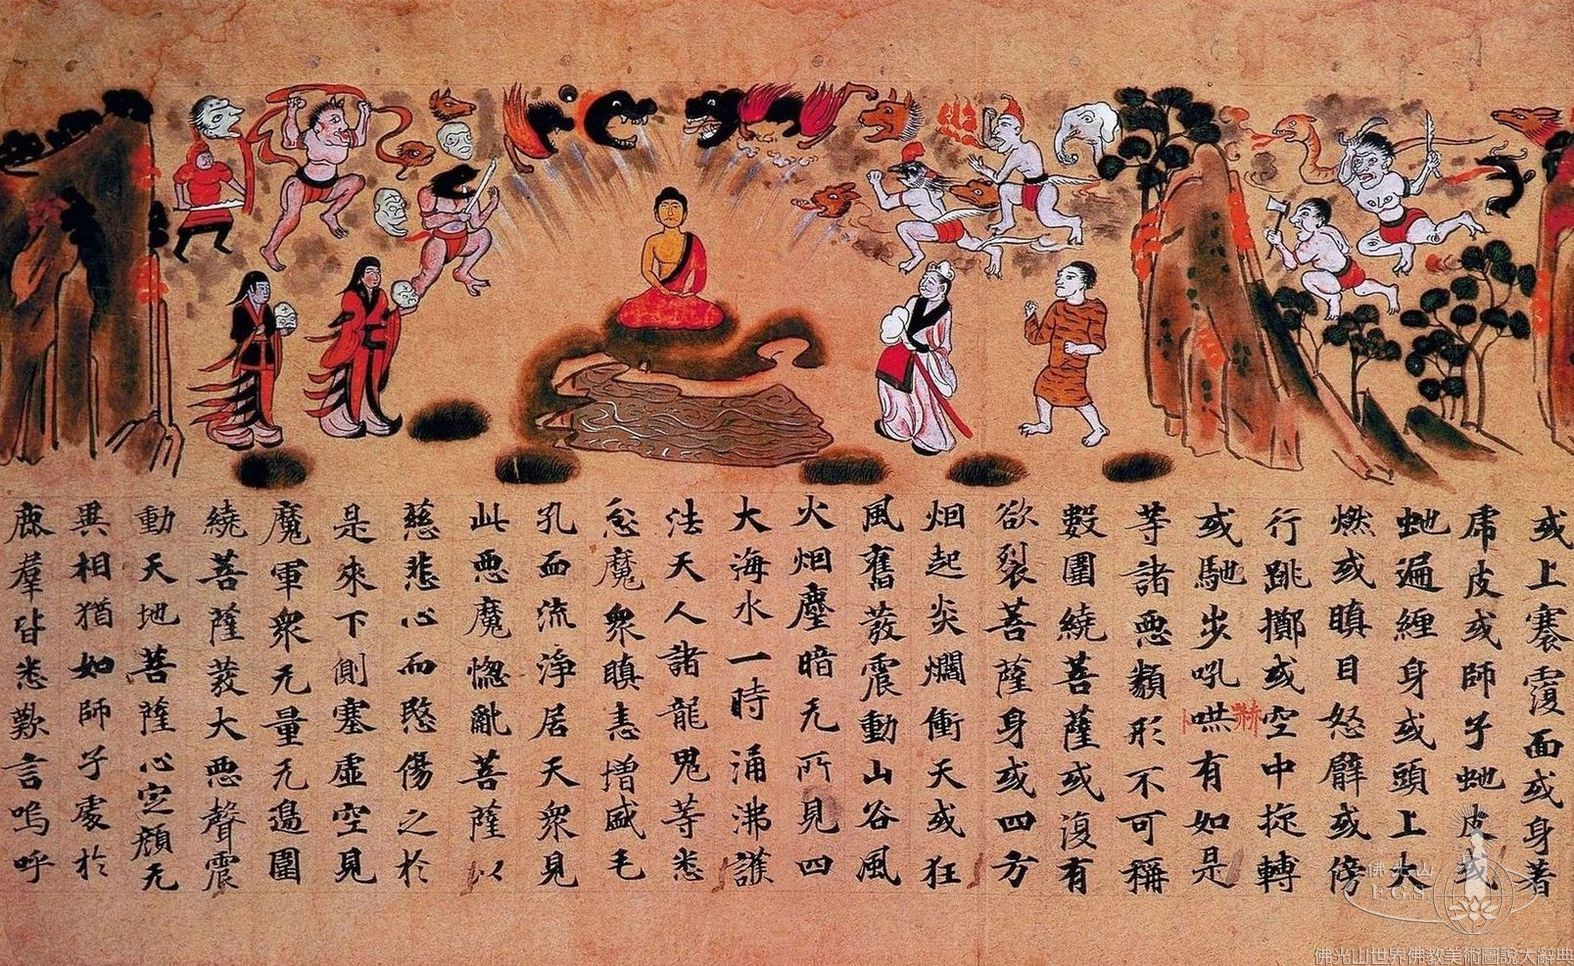 或上褰覆面或身著
虎皮或師子虵皮或
虵遍纏身或頭上火
燃或瞋目怒臂或傍
行跳擲或空中旋轉
或馳步吼嚇有如是
等諸惡類形不可稱
數圍繞菩薩或復有
欲裂菩薩身或四方
烟起炎爛衝天或狂
風奮發震動山谷風
火烟塵暗无所見四
大海水一時涌沸護
法天人諸龍鬼等悉
忿魔衆瞋恚增盛毛
孔血流淨居天衆見
此惡魔惚亂菩薩以
慈悲心而愍傷之於
是來下側塞虛空見
魔軍衆无量无邊圍
繞菩薩發大惡聲震
動天地菩薩心定顏无
異相猶如師子處於
鹿羣皆悉歎言嗚呼
佛光山
F.G.S.
佛光山世界佛教美術圖說大辭典